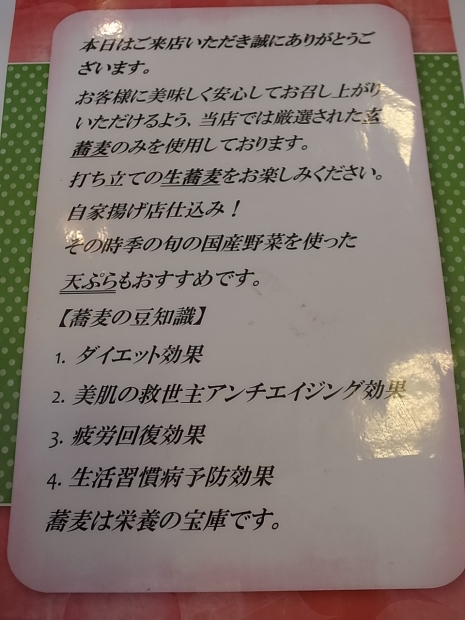 本日はご来店いただき誠にありがとうご
ざいます。
お客様に美味しく安心してお召し上がり
いただけるよう、当店では厳選された玄
蕎麦のみを使用しております。
打ち立ての生蕎麦をお楽しみください。
自家揚げ店仕込み！
その時季の旬の国産野菜を使った
天ぷらもおすすめです。
【蕎麦の豆知識】
1. ダイエット効果
2. 美肌の救世主アンチエイジング効果
3. 疲労回復効果
4. 生活習慣病予防効果
蕎麦は栄養の宝庫です。